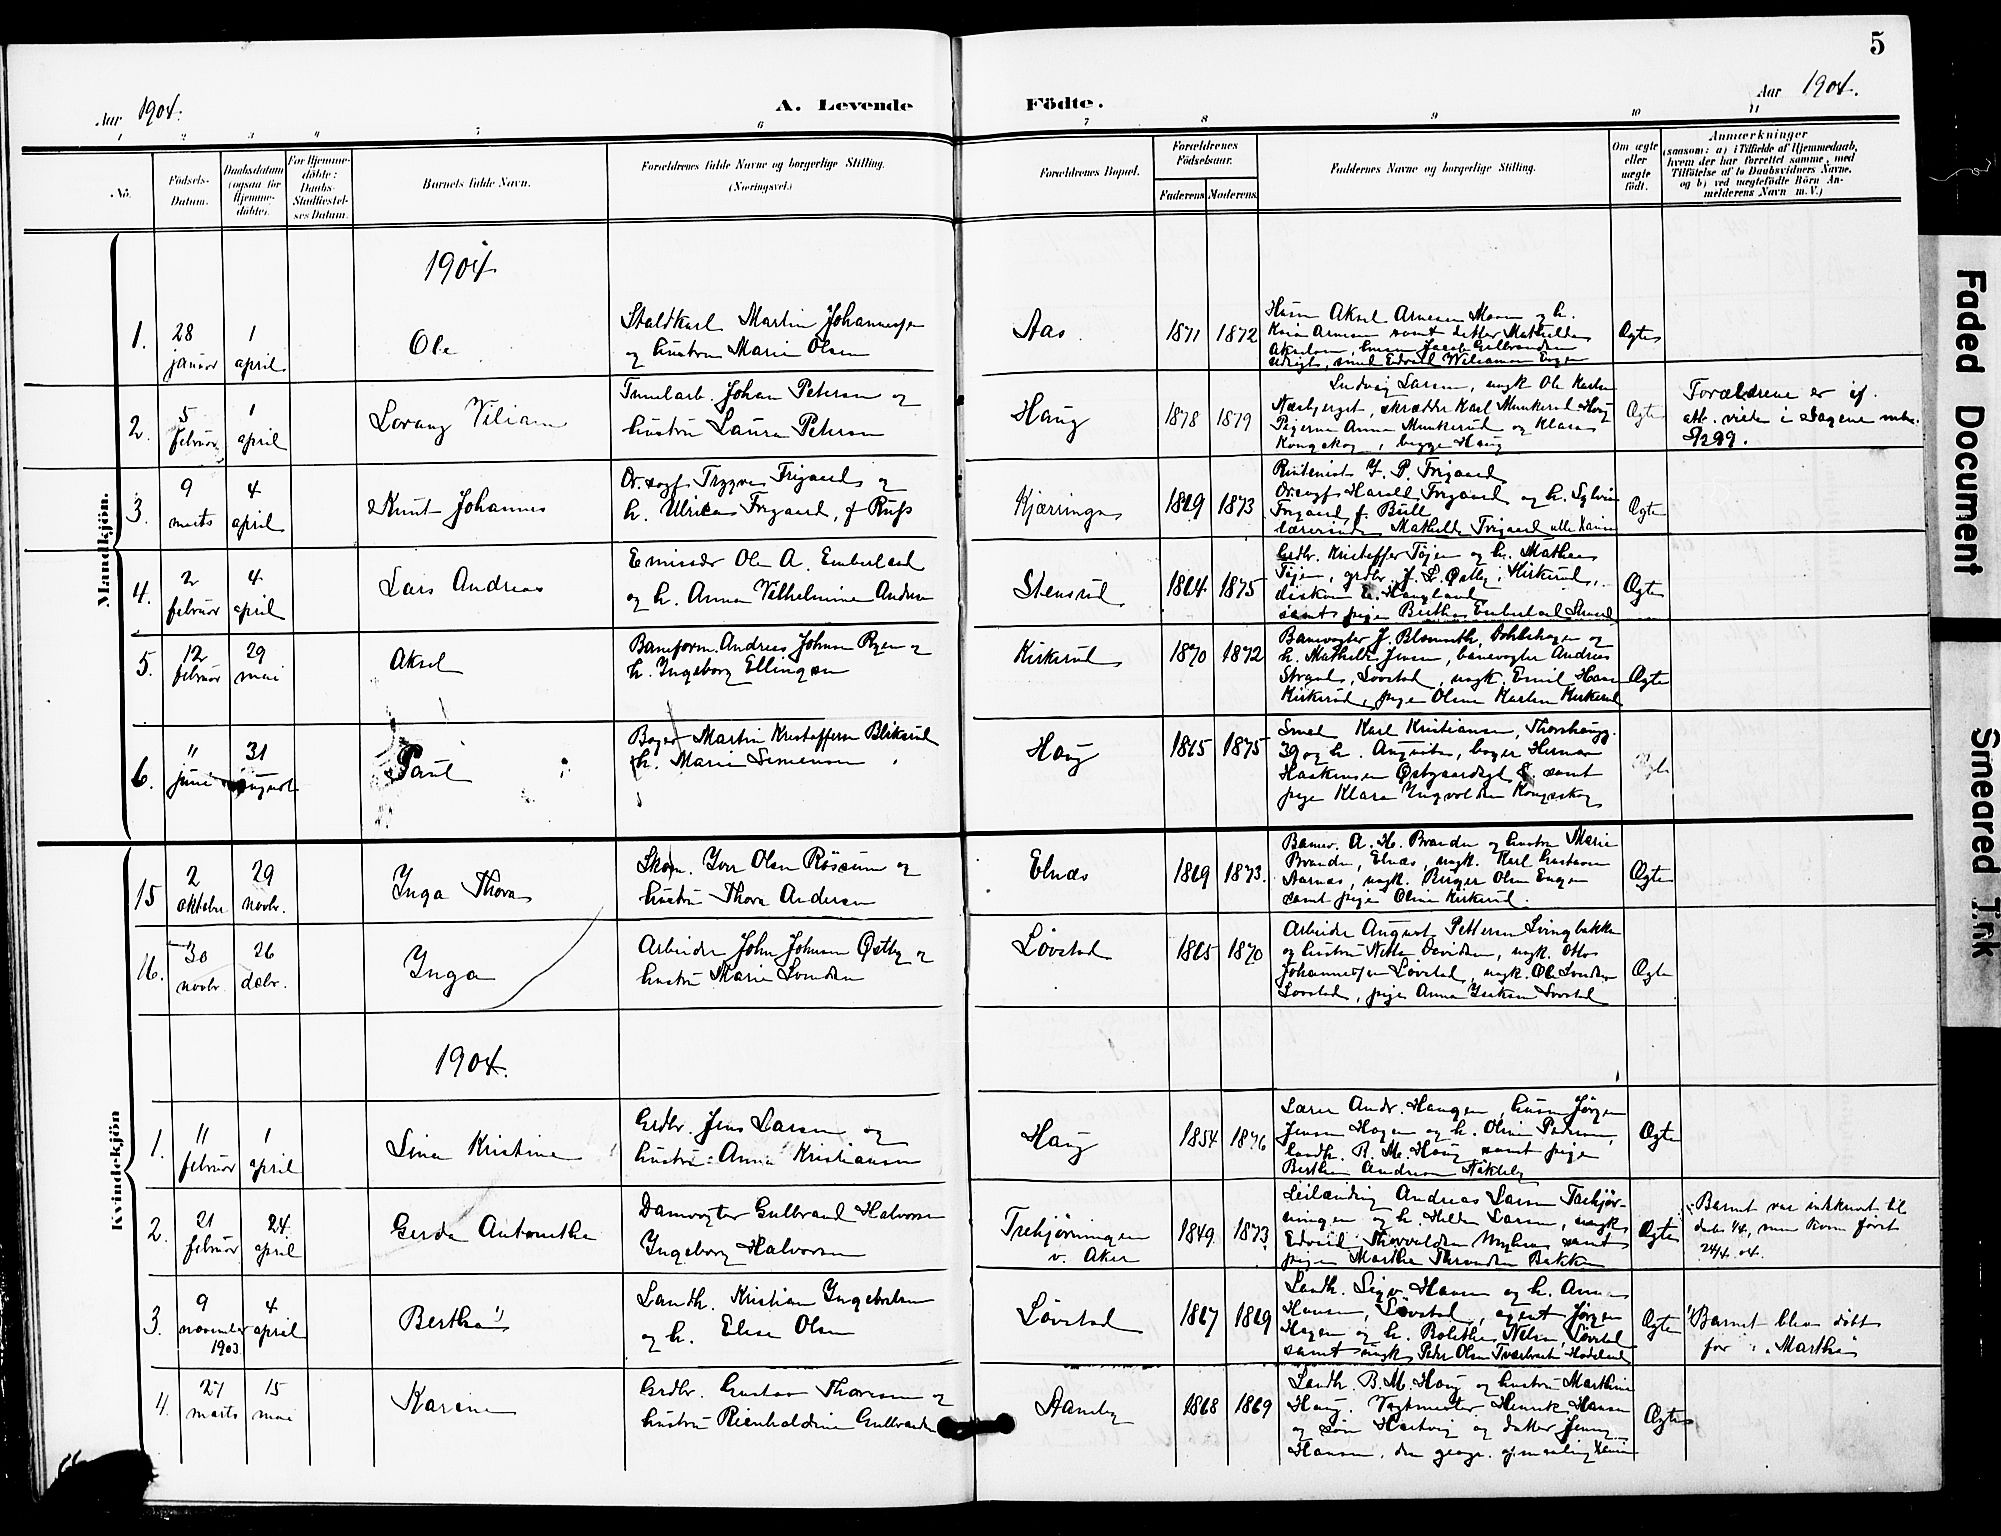 5
Aar 1904.
A. Levende
Fødte.
Aar 1904.
1 2 3 4 5 6 7 8 9 10 11
No.
Fødsels-Datum.
Daabsdatum (ogsaa for Hjemme-døbte).
For Hjemme-døbte: Daabs-Stadfæstel-ses Datum.
Barnets fulde Navn.
Forældrenes fulde Navne og borgerlige Stilling.
(Næringsvei.)
Forældrenes Bopæl.
Forældrenes Fødselsaar.
Faderens Moderens
Faddernes Navne og borgerlige Stilling.
Om ægte eller uægte født.
Anmærkninger
(saasom: a) i Tilfælde af Hjemmedaab,
hvem der har forrettet samme, med
Tilføielse af to Daabsvidners Navne,
og b) ved uægtefødte Børn An-
melderens Navn m. V.)
Mandkjøn.
1904
1.
28 januar
1 april
Ole
Staldkarl Martin Johannesen
og hustru Marie Olsen
Aas
1871 1872
Husm Aksel Arnesen Moen og h.
samt datter Mathilde
Ægte
2.
5 februar
1 april
Lorang Viliam
Tunelarb. Johan Petersen og
hustru Laura Petersen
Haug
1878 1879
Ludvig Larsen, ungk. Ole Karlsen
Næsbjerget, skrædder Karl Munkerud Haug
Pigerne Anna Munkerud og Klara
Kongsskog, begge Haug
Ægte
Forældrene er if.
att. viede i
3.
9 marts
4 april
Knut Johannes
Or.sagf. Trygve Frigaard og
h. Ulrikas Frigaard, f. Rufs
Kjærringa
1869 1873
F. P. Frigaard
Or.sagf. Harald Frigaard og h. Sylvia
Frigaard f. Bull
lærerinde Mathilde Frigaard
Ægte
4.
2 februar
4 april
Lars Andreas
Emissær Ole A. Emberland
og h. Anna Vilhelmine Andersen
Stensrud
1864 1875
Grdbr. Kristoffer Tøjen og h. Mathea
Tøjen, grdbr. J. L. Østby, Kirkerud,
diakon E. Haugland
samt pige Bertha Emberland
Ægte
5.
12 februar
29 mai
Aksel
Baneform. Andreas Johnsen Ryen og
h. Ingeborg Ellingsen
Kirkerud
1870 1872
Banevogter J.
h. Mathilde Jensen, banevogter Andreas
Strand, Løvstad, ungk. Emil Hansen
Kirkerud, pige Oline Karlsen Kirkerud
Ægte
6.
11 juni
31 august
Paul
Bager Martin Kristoffersen Bliksrud
h. Marie Simensen
Haug
1865 1875
Smed Karl Kristiansen, Thorshaugg.
39 og h. Augusta, bager Herman
samt
pige Klara Ingvoldsen Kongsskog
Ægte
Kvindekjøn
15
2 oktober
29 novbr.
Inga Thora
Skom. Iver Olsen Røssum og
hustru Thora Andersen
Elnæs
1869 1873.
Banev. A. H. Branden og hustru Marie
Branden, Elnæs, ungk. Karl Gustavsen
Aarnæs, ungk. Birger Olsen Engen
samt pige Oline Kirkerud.
Ægte
16.
30 novbr.
26 decbr.
Inga
Arbeider John Johnsen Østby og
hustru Marie Svendsen
Løvstad
1865 1870
Arbeider August Pettersen Svingbakken
og hustru Nette Davidsen, ungk. Otto
Johannesen Løvstad, ungk. Ole Svendsen
Løvstad, pige Anna Isaksen Løvstad
Ægte
1904.
1.
11 februar
1 april
Lina Kristine
Grdbr. Jens Larsen og
hustru: Anna Kristiansen
Haug
1854 1876
Lærer Andr. Haugen, husm Jørgen
Jensen Hagen og h. Oline Pedersen,
landh. B. M. Haug samt pige
Berthea Andersen
Ægte
2.
21 februar
24. april
Gerda Antonetha
Damvogter Gulbrand Halvorsen
Ingeborg Halvorsen
Trehjørningen
v. Aker
1849 1873
Leilænding Andreas Larsen Trehjør-
ningen og h. Helene Larsen, ungk
Edvard Thorvaldsen Myhren samt
pigen Martha Thorvaldsen Bakken
Ægte
Barnet var indkaldt til
daab 1/4, men kom først
24/4 04.
3.
9 november 1903
4 april
Bertha 1)
Landh. Kristian Ingebretsen
og h. Elise Olsen
Løvstad
1867 1869
Landh. Sigv. Hansen og h. Anna
Hansen, Løvstad, agent Jørgen
Hagen og h. Bolethe Nelsen, Løvstad
samt ungk Peder Olsen
Ægte
1) Barnet blev døbt
for: Martha
4.
27 marts
15 mai
Karine
Grdbr. Gustav Thoresen og
hustru Rienholdine Gulbrandsen
Aamby
1868 1869
Landh. B. M. Haug og hustru Marthine
Haug. Vagtmester Henrik Hansen
og søn Hartvig og datter Jenny
Hansen, den geogr. opmaaling Kr.ania
Ægte
Faded Document
Smeared Ink